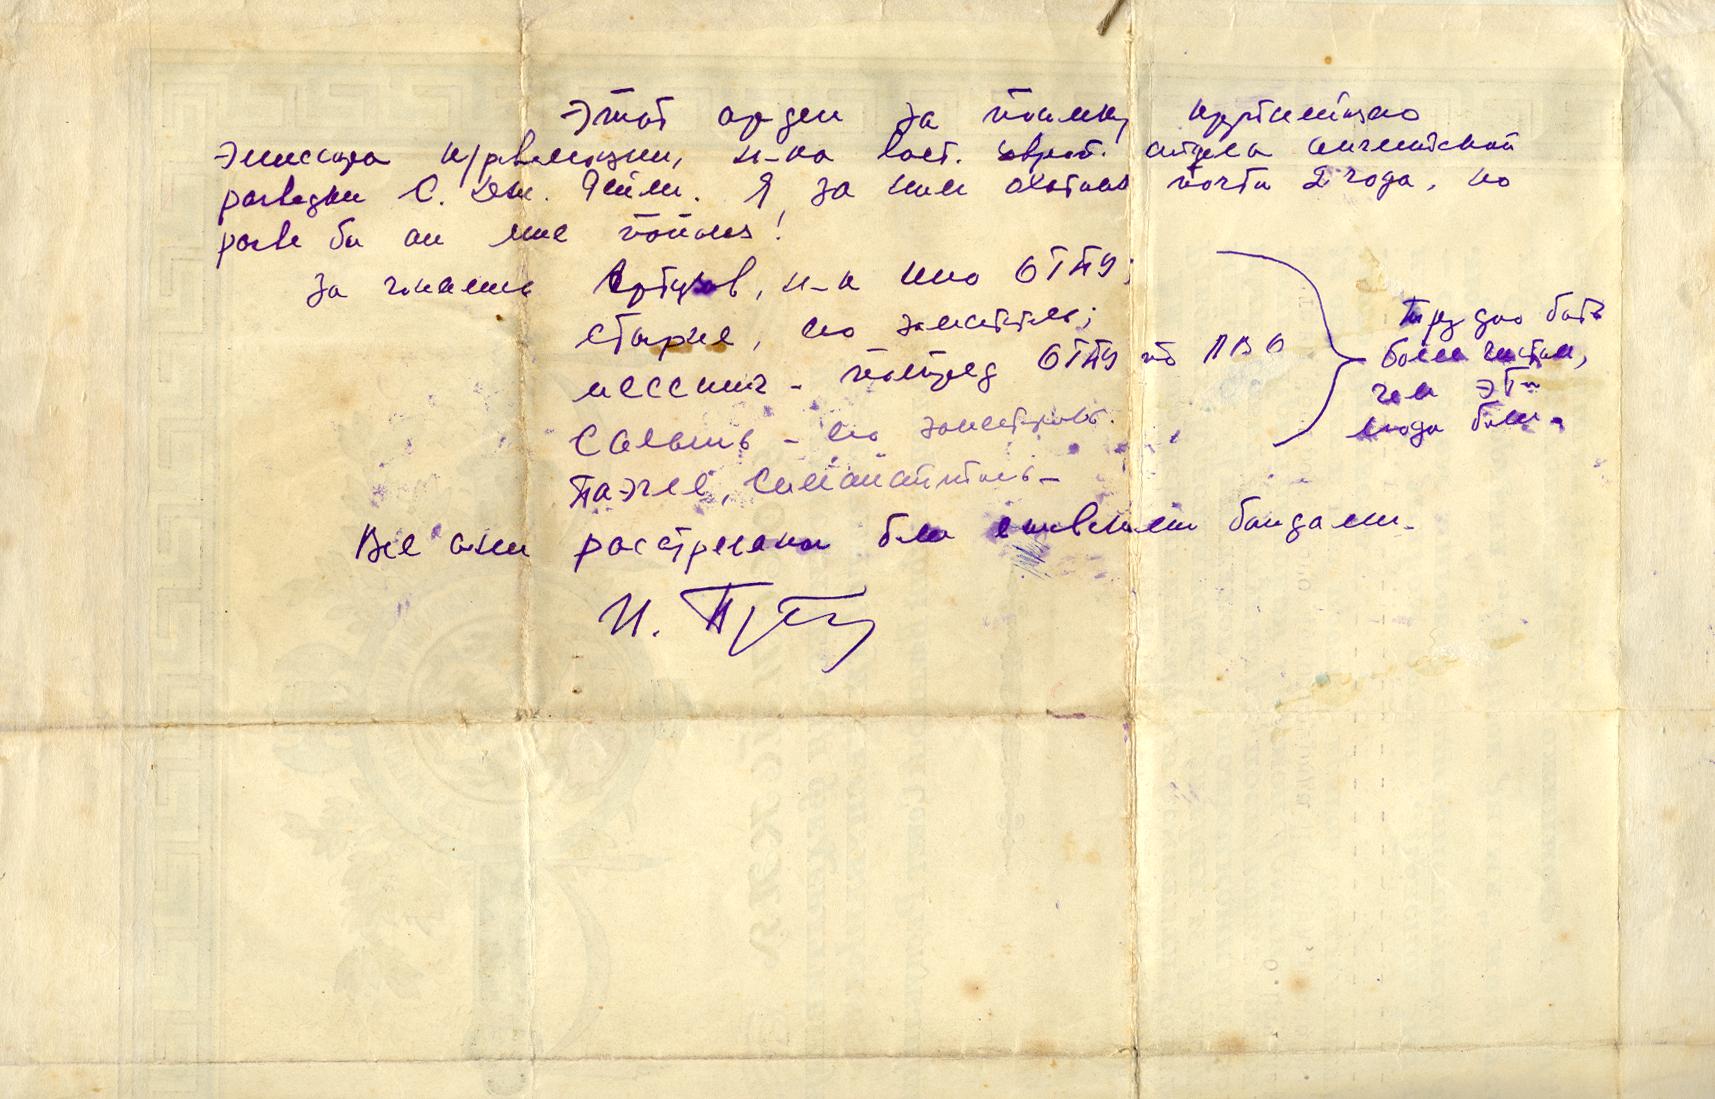 Этот орден за поимку крупнейшего
эмиссара к/революции, н-ка вост. европ. отдела английской
разведки С. Дж. Рейли. Я за ним охотился почти 2 года, но
разве бы он мне попался!
За
Артузов, н-к ИНО ОГПУ;
его заместитель;
Мессинг - полпред ОГПУ по ЛВО
Салынь - его заместитель.
Все они расстреляны были бандами.
Трудно быть
более чистым,
чем эти
люди были.
И.